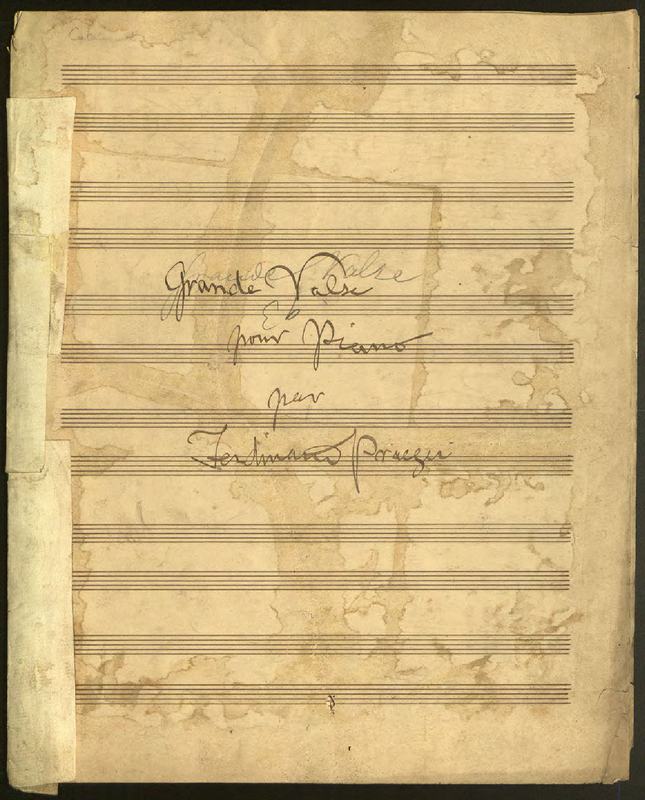 Grande Valse
Grande Valse
E♭
pour Piano
par
Ferdinand Praeger